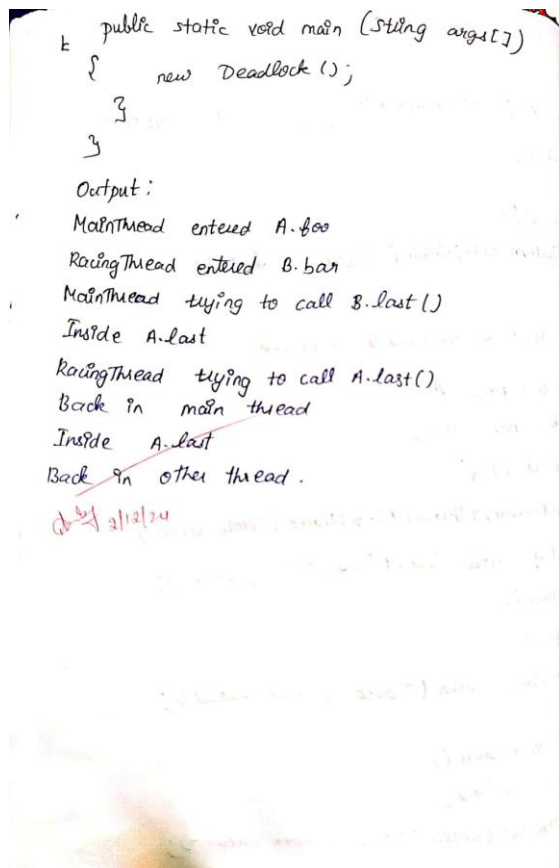 public static void main (String args[])
{ new Deadlock ();
}
}
Output:
MainThread entered A.foo
RacingThread entered B.bar
MainThread trying to call B.last()
Inside A.last
RacingThread trying to call A.last()
Back in main thread
Inside A.last
Back in other thread.
2/12/24